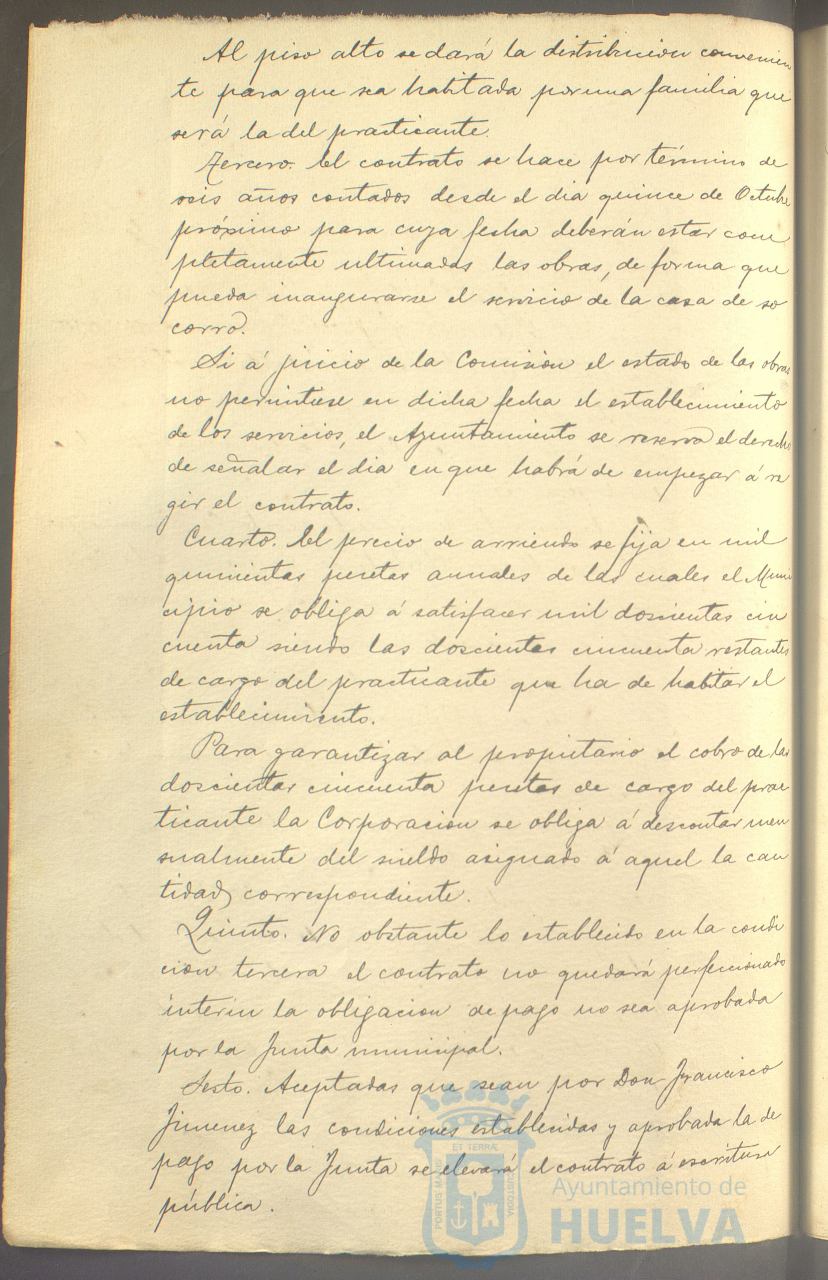 Al piso alto se dará la distribucion convenien
te para que sea habitada por una familia que
será la del practicante.
Tercero. El contrato se hace por término de
seis años contados desde el dia quince de Octubre
próximo para cuya fecha deberán estar com
pletamente ultimadas las obras, de forma que
pueda inaugurarse el servicio de la casa de so
corro.
Si á juicio de la Comision el estado de las obras
no permitiese en dicha fecha el establecimiento
de los servicios, el Ayuntamiento se reserva el derecho
de señalar el dia en que habrá de empezar á re
gir el contrato.
Cuarto. El precio de arriendo se fija en mil
quinientas pesetas anuales de las cuales el Muni
cipio se obliga á satisfacer mil doscientas cin
cuenta siendo las doscientas cincuenta restantes
de cargo del practicante que ha de habitar el
establecimiento.
Para garantizar al propietario el cobro de las
doscientas cincuenta pesetas de cargo del prac
ticante la Corporacion se obliga á descontar men
sualmente del sueldo asignado á aquel la can
tidad correspondiente.
Quinto. No obstante lo establecido en la condi
cion tercera el contrato no quedará perfeccionado
interin la obligacion de pago no sea aprobada
por la Junta municipal.
Sesto. Aceptadas que sean por Don Francisco
Jimenez las condiciones establecidas y aprobada la de
pago por la Junta se elevará el contrato á escritura
pública.
ET TERRÆ
PORTUS MARIS
CUSTODIA
Ayuntamiento de
HUELVA